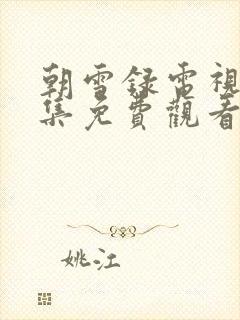 朝雪録電視
集免費觀看
姚江